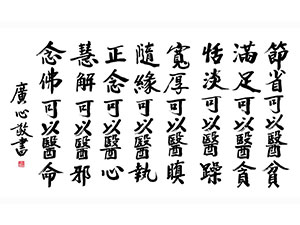 節省可以醫貧
滿足可以醫貪
恬淡可以醫躁
寬厚可以醫瞋
隨緣可以醫執
正念可以醫心
慧解可以醫邪
念佛可以醫命
廣心敬書